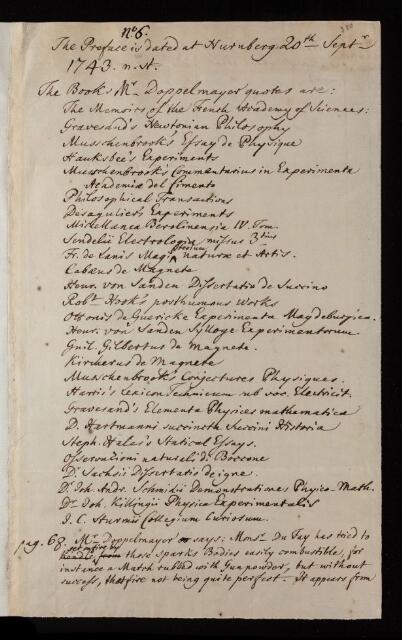 No. 6.
380
The Preface is dated at Nurnberg 20th Septr.
1743. n. st.
The Books Mr. Doppelmayer quotes are:
The Memoirs of the French Academy of Sciences:
Gravesand's Newtonian Philosophy
Musschenbrook's Essay de Physique
Hauksbee's Experiments
Musschenbrook's Commentarius in Experimenta
Academiæ del Cimento
Philosophical Transactions
Desagulier's Experiments
Miscellanea Berolinensia IV. Tom.
Sendelii Electrologia missus 3tius
Fr. de Lanis Magisterium naturæ et Artis.
Cabæus de Magnete
Henr. von Sanden Dissertatio de Succino
Robt. Hook's posthumous Works
Ottonis de Guericke Experimenta Magdeburgica.
Henr. von Sanden Sylloge Experimentorum
Guil. Gilbertus de Magnete.
Kircherus de Magnete
Musschenbrook's Conjectures Physiques.
Harris's Lexicon Technicum sub voc. Electricit.
Gravesand's Elementa Physices mathematica
D. Hartmanni succincta Succini Historia
Steph. Hales's Statical Essays.
Osservazioni naturali di Boccone
Dr. Sachsii Dissertatio de igne.
Dr. Joh. Andr. Schmidii Demonstrationes Physico-Math.
Dr. Joh. Killingii Physica Experimentalis
J. C. Sturmii Collegium Curiosum.
pag. 68. Mr. Doppelmayer says: Monsr. Du Fay has tried to
set on fire by
those Sparks Bodies easily combustible, for
instance a Match rubbed with Gunpowder, but without
success, that fire not being quite perfect. It appears from